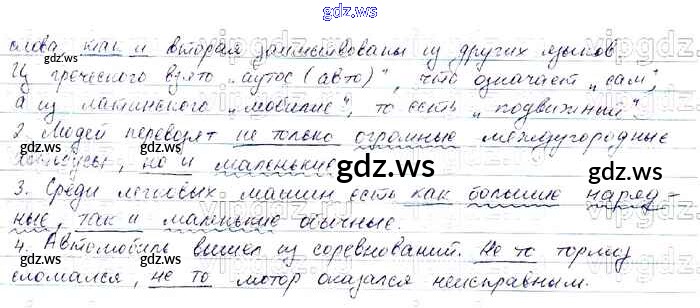 gdz.ws
слова, как и вторая заимствованы из других языков
Из греческого взято „аутос (авто)", что означает „сам",
а из латинского „мобилис", то есть „подвижный".
2. Людей перевозят не только огромные междугородные
автобусы, но и маленькие
gdz.ws
3. Среди легковых машин есть как большие наряд-
ные, так и маленькие обычные.
4. Автомобиль вышел из соревнований. Не то тормоз
сломался, не то мотор оказался неисправным.
gdz.ws
gdz.ws